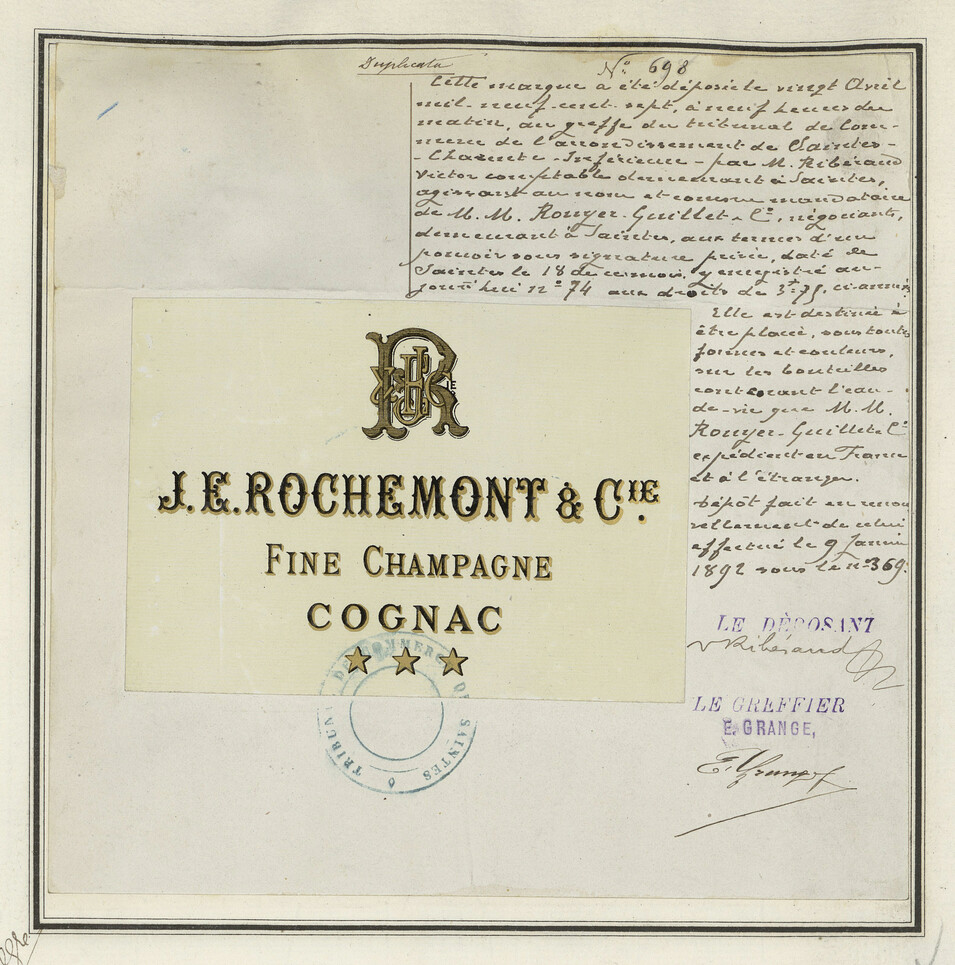 Duplicata
N° 698
Cette marque a été déposée le vingt Avril
mil-neuf-cent-sept, à neuf heures du
matin, au greffe du tribunal de Com-
merce de l'arrondissement de Saintes-
-Charente-Inférieure- par M. Ribéraud
Victor comptable demeurant à Saintes,
agissant au nom et comme mandataire
de M. M. Rouyer-Guillet & Cie, négociants,
demeurant à Saintes, aux termes d'un
pouvoir sous signature privée, daté de
Saintes le 18 de ce mois, y enregistré au-
jourd'hui n° 74 aux droits de 3f 75, ci-annexé.
Elle est destinée à
être placée, sous toutes
formes et couleurs,
sur les bouteilles
contenant l'eau-
de-vie que M. M.
Rouyer-Guillet & Cie
expédient en France
et à l'étranger.
Dépôt fait en renou
vellement de celui
effectué le 9 Janvier
1892 sous le n° 369.
J.E. ROCHEMONT & CIE.
FINE CHAMPAGNE
COGNAC
TRIBUNAL DE COMMERCE DE SAINTES
LE DÉPOSANT
V Ribéraud
LE GREFFIER
E. GRANGE,
E. Grange